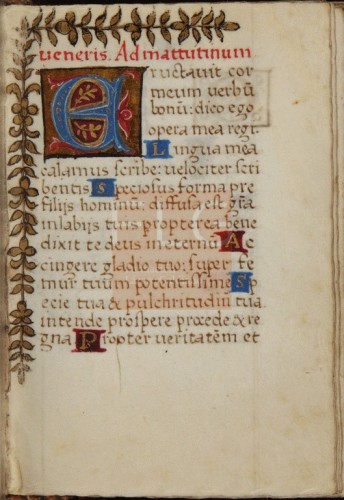 ueneris. Ad mattutinum
Eructauit cor
meum uerbū
bonū: dico ego
opera mea regi.
Lingua mea
calamus scribe: uelociter scri
bentis Speciosus forma pre
filijs hominū: diffusa est gr̄a
in labijs tuis propterea bene
dixit te deus in eternū Ac
cingere gladio tuo: super fe
mur tuum potentissime S
pecie tua & pulchritudinē tua
intende prospere procede & re
gna Propter ueritatem et